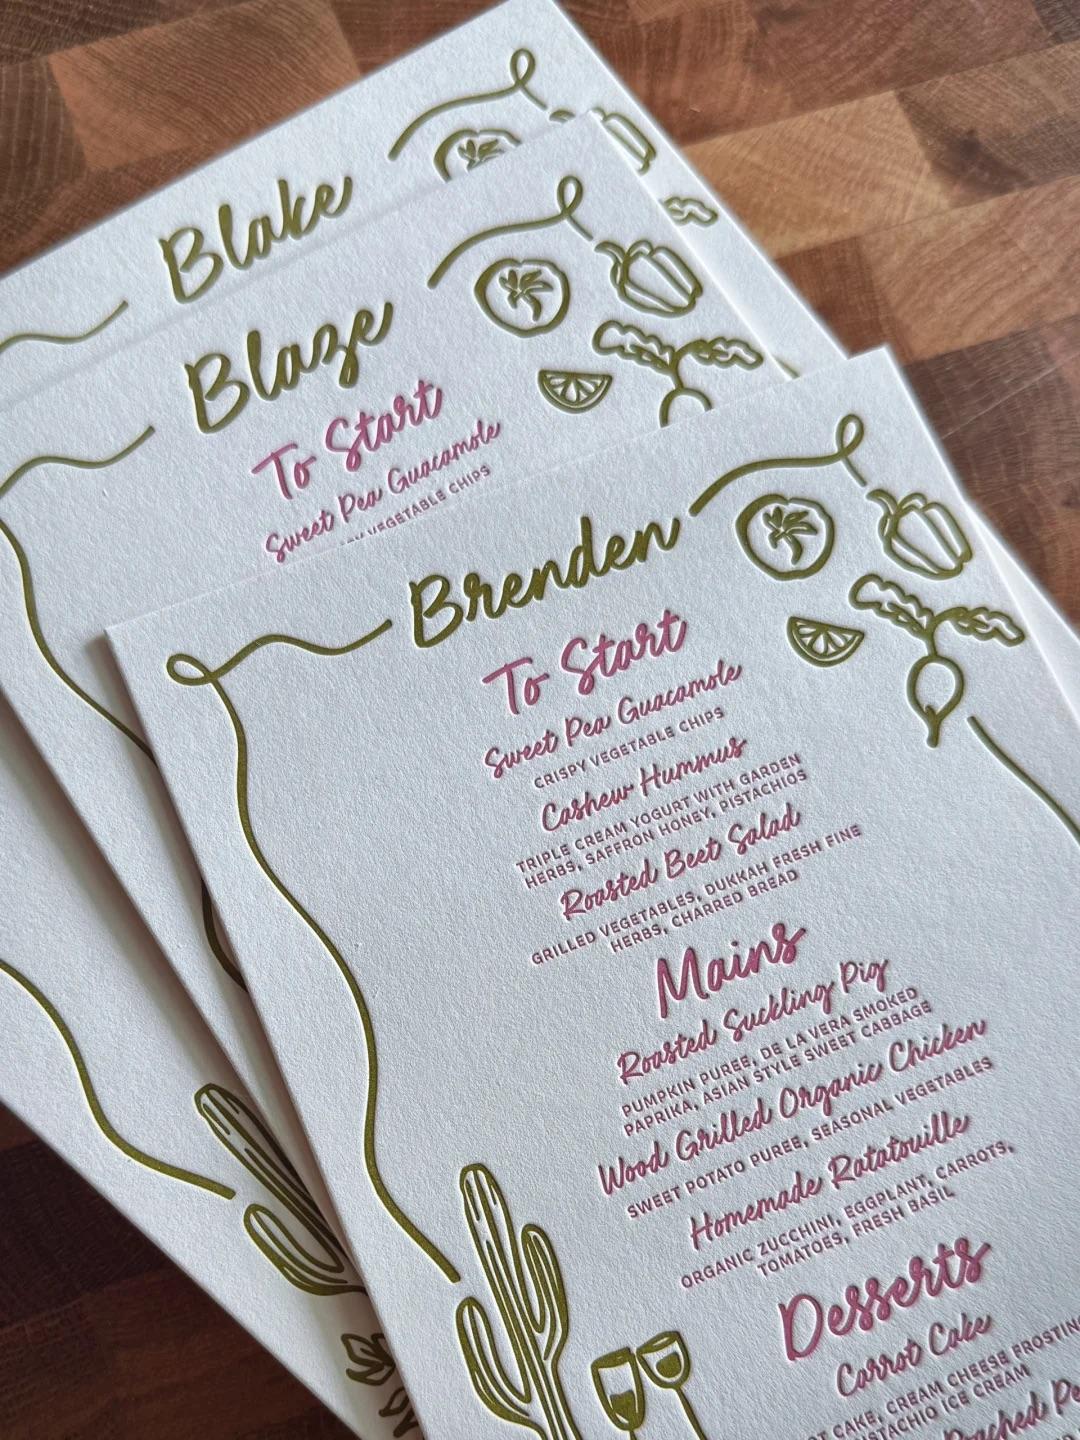 Blake
Blaze
To Start
Sweet Pea Guacamole
VEGETABLE CHIPS
Brenden
To Start
Sweet Pea Guacamole
CRISPY VEGETABLE CHIPS
Cashew Hummus
TRIPLE CREAM YOGURT WITH GARDEN
HERBS, SAFFRON HONEY, PISTACHIOS
Roasted Beet Salad
GRILLED VEGETABLES, DUKKAH FRESH FINE
HERBS, CHARRED BREAD
Mains
Roasted Suckling Pig
PUMPKIN PUREE, DE LA VERA SMOKED
PAPRIKA, ASIAN STYLE SWEET CABBAGE
Wood Grilled Organic Chicken
SWEET POTATO PUREE, SEASONAL VEGETABLES
Homemade Ratatouille
ORGANIC ZUCCHINI, EGGPLANT, CARROTS,
TOMATOES, FRESH BASIL
Desserts
Carrot Cake
CAKE, CREAM CHEESE FROSTING
ICE CREAM